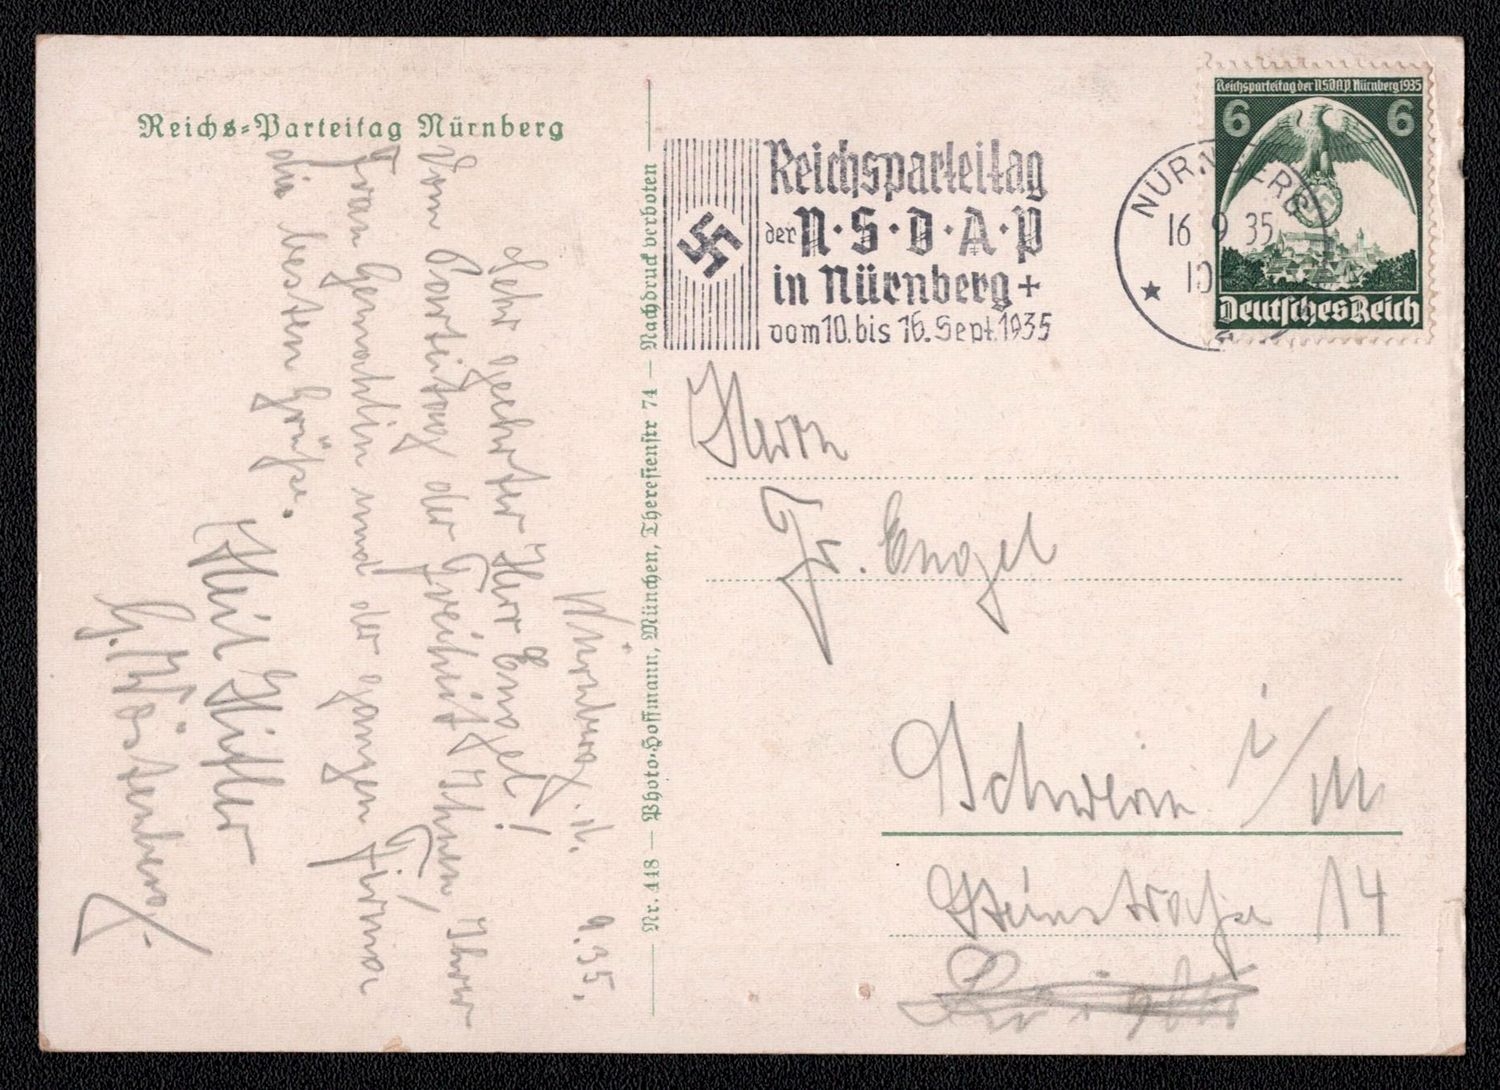 Reichs=Parteitag Nürnberg
Nürnberg, d. 9.35.
Sehr geehrter Herr Engel!
Vom Parteitag der Freiheit Ihnen, Ihrer
Frau Gemahlin und der ganzen Firma
die besten Grüße.
Heil Hitler
G. Wöstenberg.
Nr. 448 — Photo-Hoffmann, München, Theresienstr 74 — Nachdruck verboten
Reichsparteitag
der N·S·D·A·P
in Nürnberg +
vom 10. bis 16. Sept. 1935
NÜRNBERG
16 9 35
10
Reichsparteitag der N.S.D.A.P. Nürnberg 1935
6 6
Deutsches Reich
Herrn
Fr. Engel
Schwerin i/M
Steinstraße 14